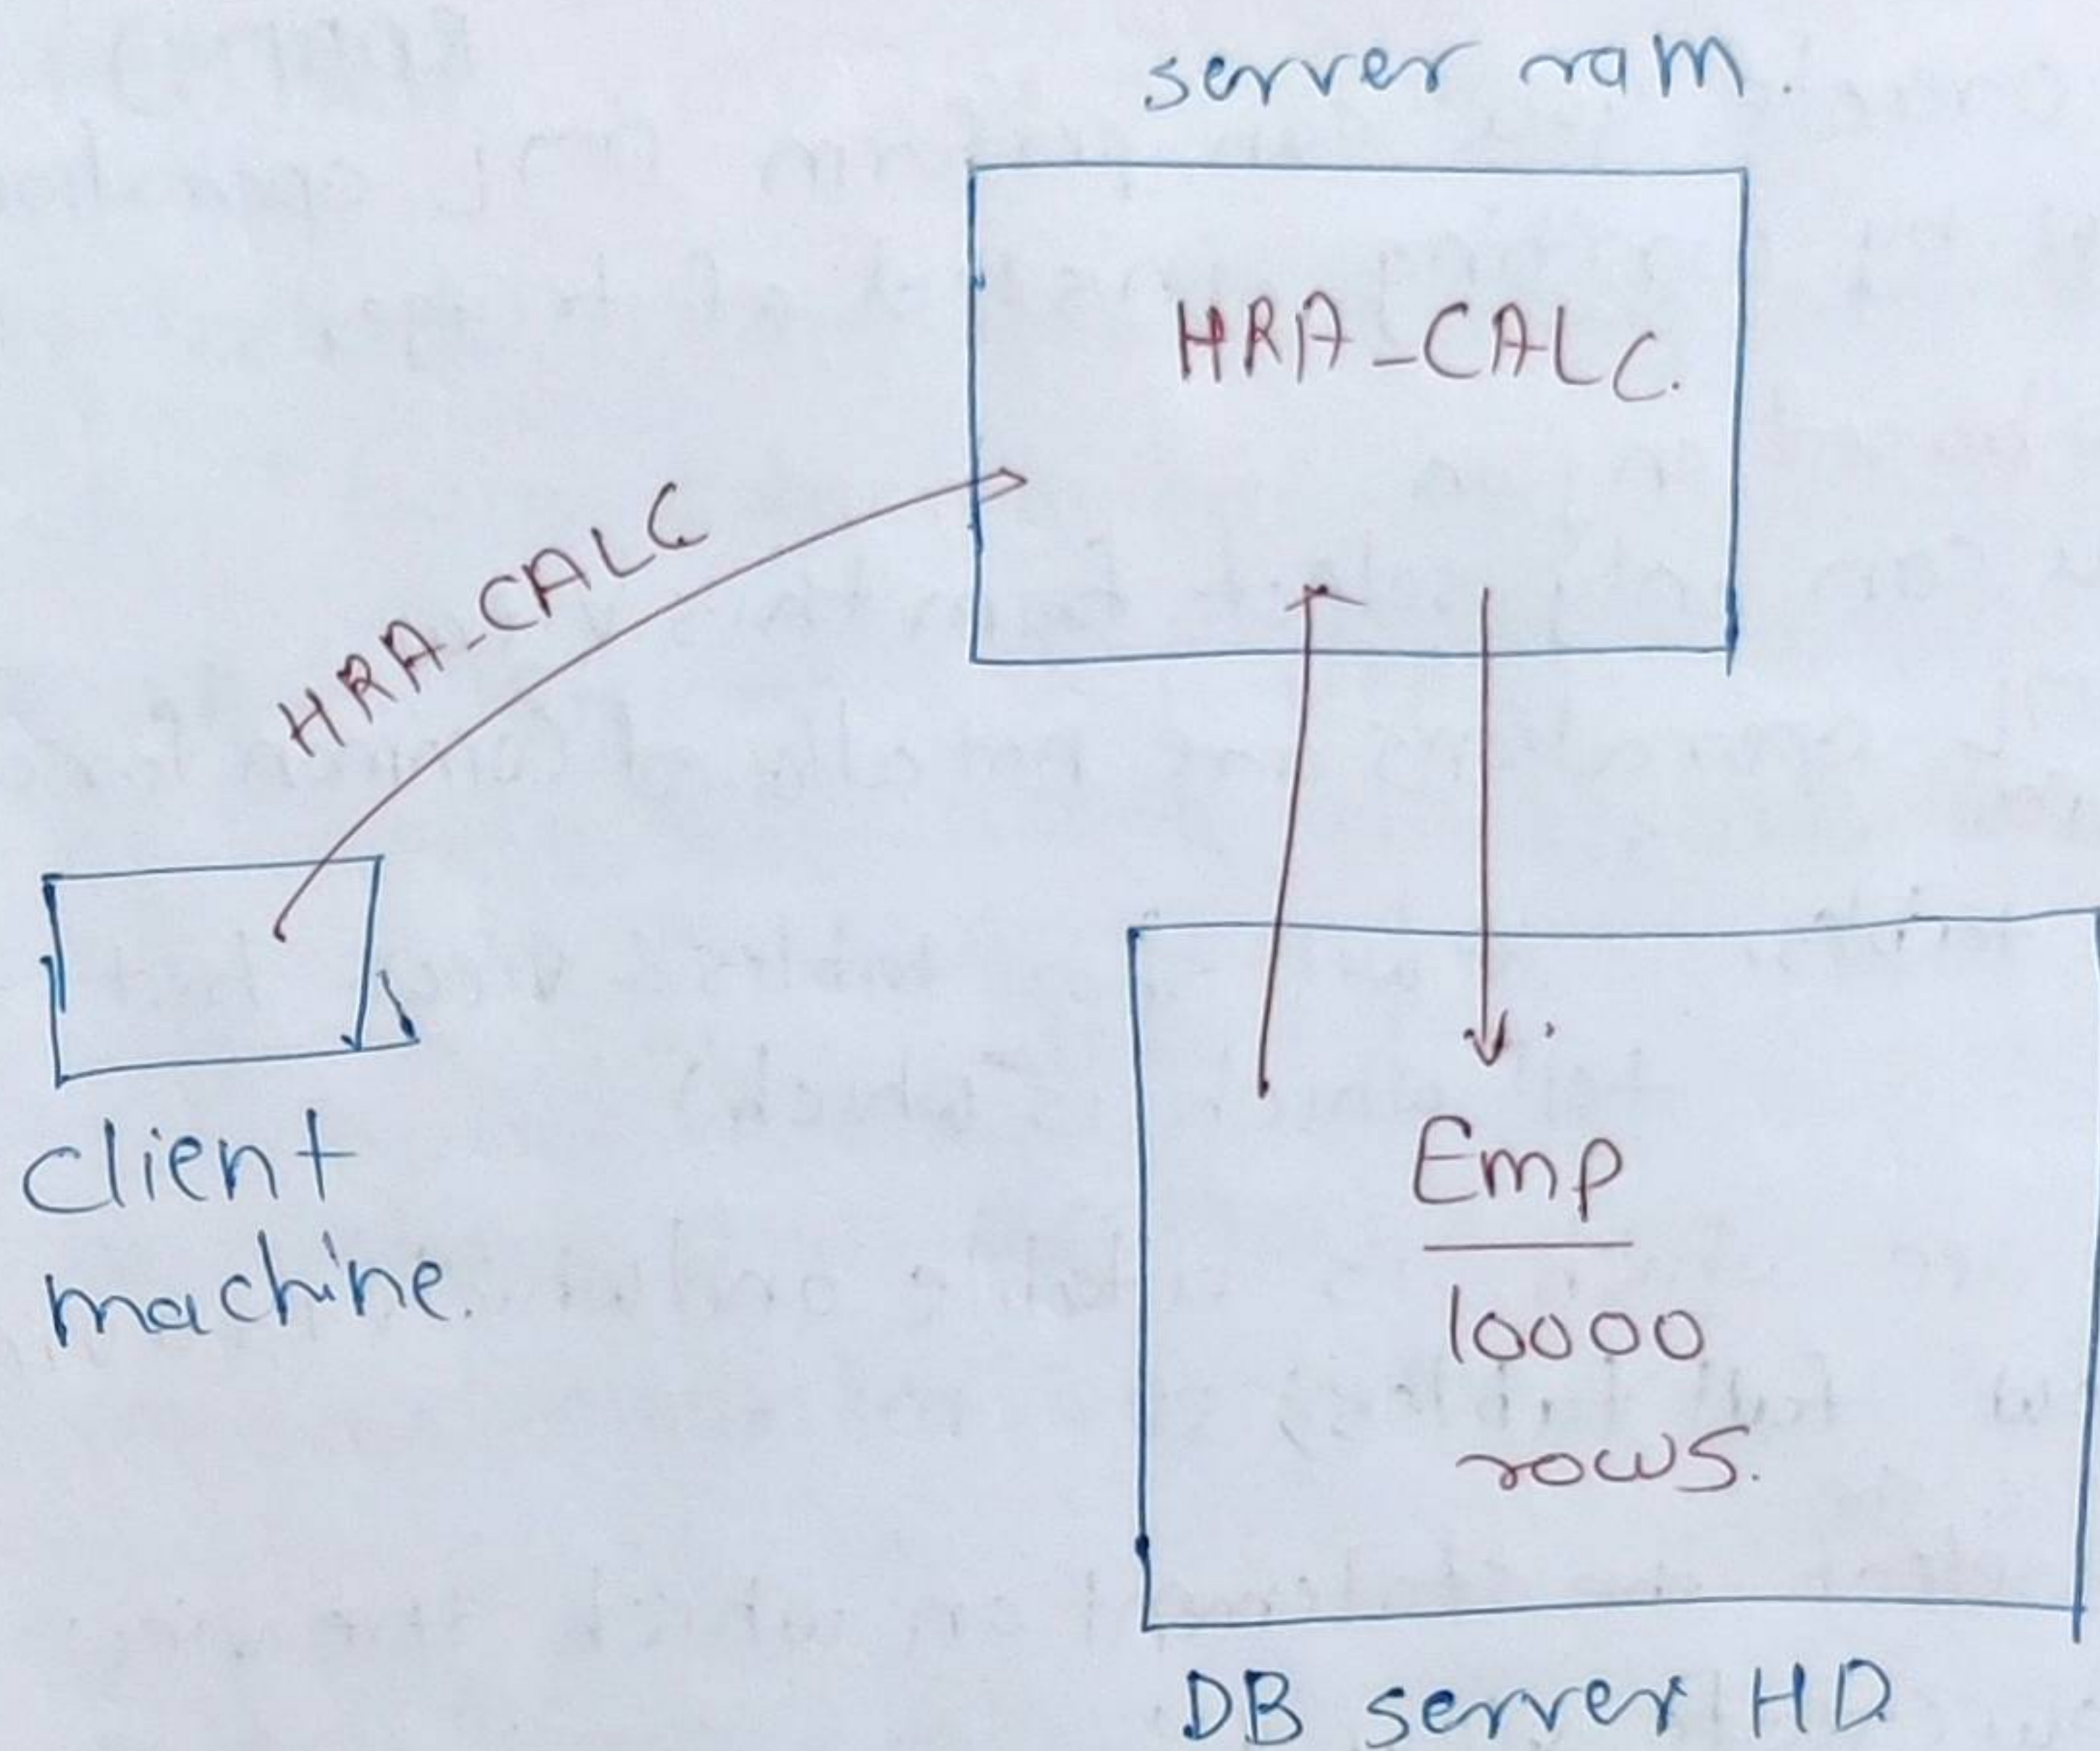 server ram.
HRA_CALC.
HRA_CALC
client
machine.
Emp
10000
rows.
DB server HD